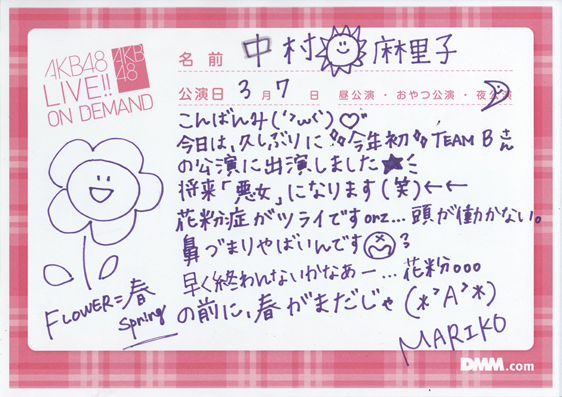 AKB48
LIVE!!
ON DEMAND
AKB
48
名前 中村麻里子
公演日 3月7日 昼公演・おやつ公演・夜公演
こんばんみ(´>ω<`)♡
今日は、久しぶりに"今年初"TEAM Bさん
の公演に出演しました★
将来「悪女」になります(笑)←←
花粉症がツライですorz...頭が働かない。
鼻づまりやばいんです
早く終わんないかなあー...花粉ooo
の前に、春がまだじゃ(*'A'*)
FLOWER=春
Spring
MARIKO
DMM.com